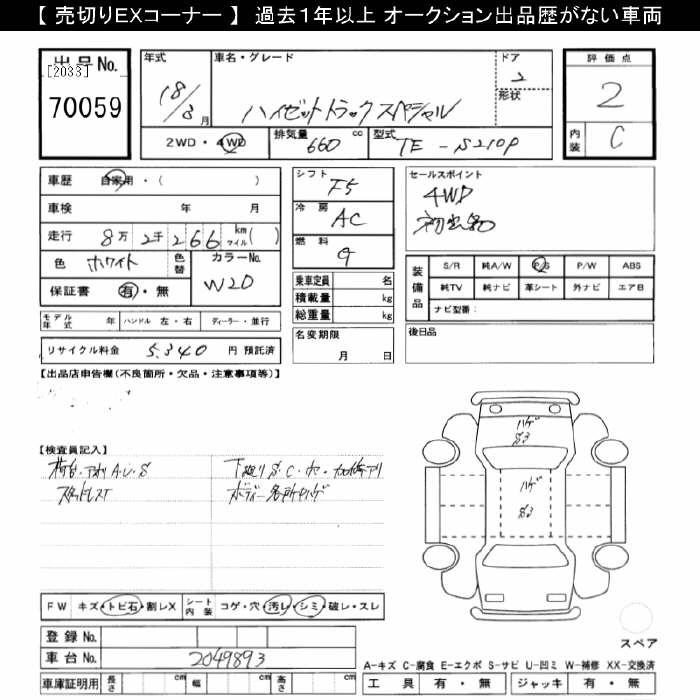 【 売切りEXコーナー 】 過去１年以上 オークション出品歴がない車両
出品No.
[2033]
70059
年式
18/8月
車名・グレード
ハイゼットトラック スペシャル
ドア
2
形状
2WD・4WD
排気量 660 cc
型式 TE-S210P
評価点
2
内装 C
車歴 自家用・( )
車検 年 月
走行 8万2千266 km マイル( )
色 ホワイト 色替 カラーNo. W20
保証書 有・無
モデル年式 年 ハンドル 左・右 ディーラー・並行
リサイクル料金 5,340 円 預託済
シフト F5
冷房 AC
燃料 G
乗車定員 名
積載量 kg
総重量 kg
名変期限 月 日
セールスポイント
4WD
初出品
装備品
S/R 純A/W P/S P/W ABS
純TV 純ナビ 革シート 外ナビ エアB
ナビ型番：
後日品
【出品店申告欄(不良箇所・欠品・注意事項等)】
【検査員記入】
荷台・アオリ A・U・S
スタッドレスT
下廻り S・C・穴・加修アリ
ボディー各所サビ・ハゲ
ハゲ
S3
ハゲ
S3
FW キズ・トビ石・割レX
シート内装 コゲ・穴・汚レ・シミ・破レ・スレ
登録No.
車台No. 2049893
車庫証明用 長さ cm 幅 cm 高さ cm
スペア
A-キズ C-腐食 E-エクボ S-サビ U-凹ミ W-補修 XX-交換済
工具 有・無 ジャッキ 有・無